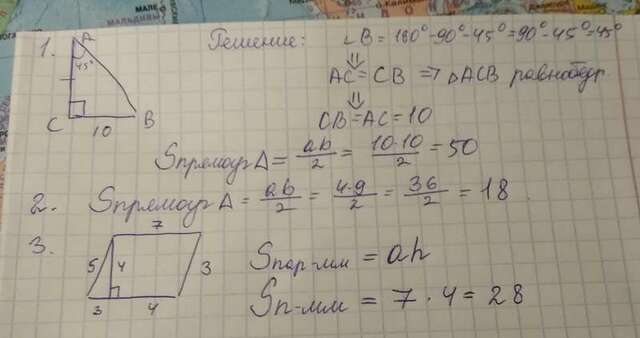 МАЛЕ
МАЛЬДИВЫ
1. A
45°
C 10 B
Решение: ∠B = 180°-90°-45°=90°-45°=45°
⇓
AC = CB ⇒ ΔACB равнобедр
⇓
CB=AC=10
Sпрямоуг Δ = ab/2 = 10·10/2 = 50
2. Sпрямоуг Δ = ab/2 = 4·9/2 = 36/2 = 18
3. 7
5 4 3
3 4
Sпар-мм = ah
Sп-мм = 7 · 4 = 28